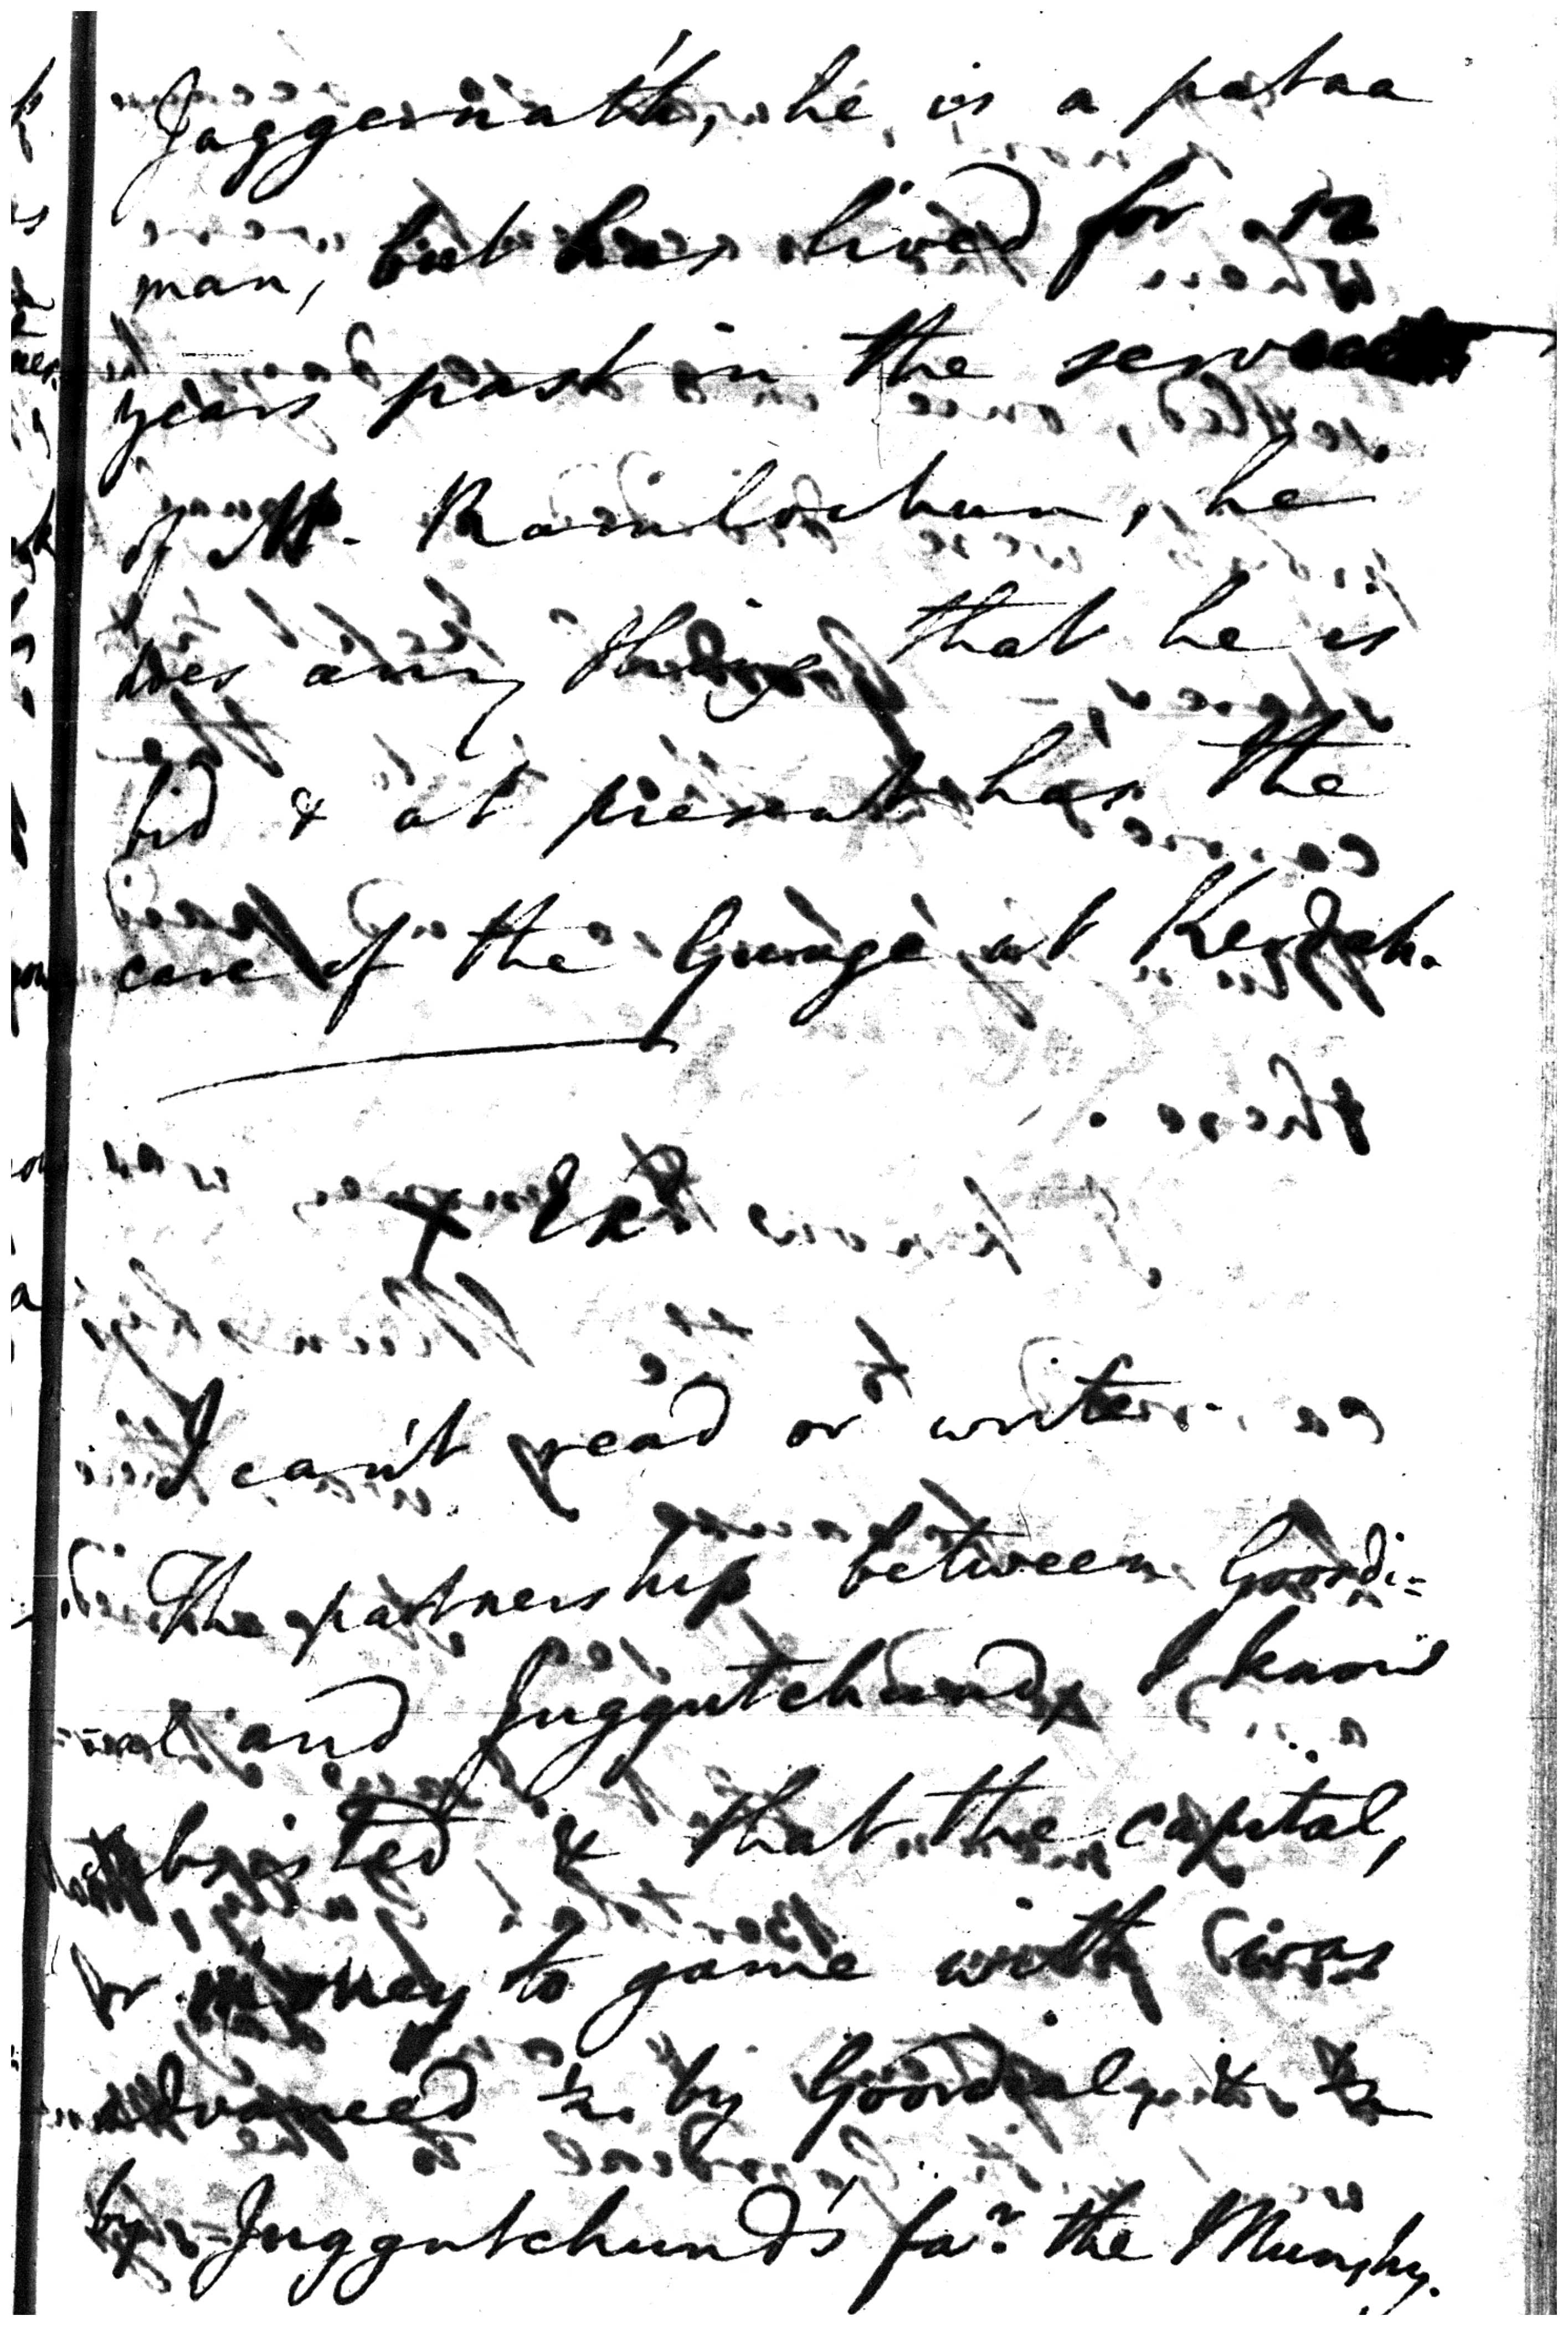 Jaggernath, he is a patna
man, but has lived for 12
years past in the service
of Mr. Ramlochun, he
does any thing that he is
bid & at present has the
care of the Gunge at
x Exd.
I can't read or write.
The partnership between Goordi=
=al and Juggutchund, I know
subsisted & that the capital,
or money to game with was
advanced ½ by Goordial, & ½
by Juggutchund's far. the Munshy.